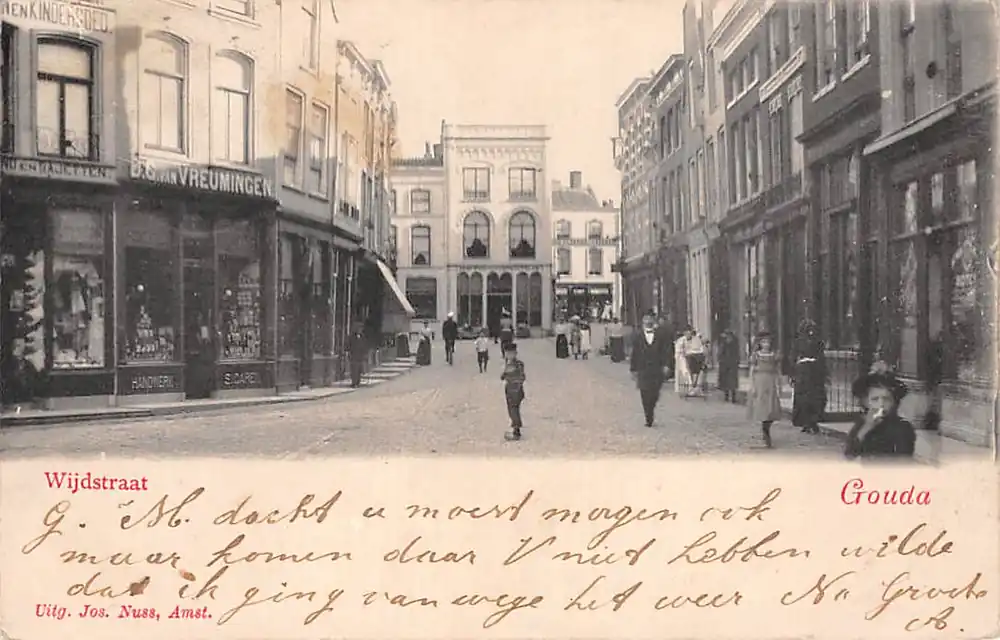 EN KINDERGOED.
D. G. VAN VREUMINGEN.
HANDWERK
SIGAREN
Wijdstraat
Gouda
G. M. dacht u moest morgen ook
maar komen daar V niet hebben wilde
dat ik ging vanwege het weer Na Groete
A.
Uitg. Jos. Nuss, Amst.